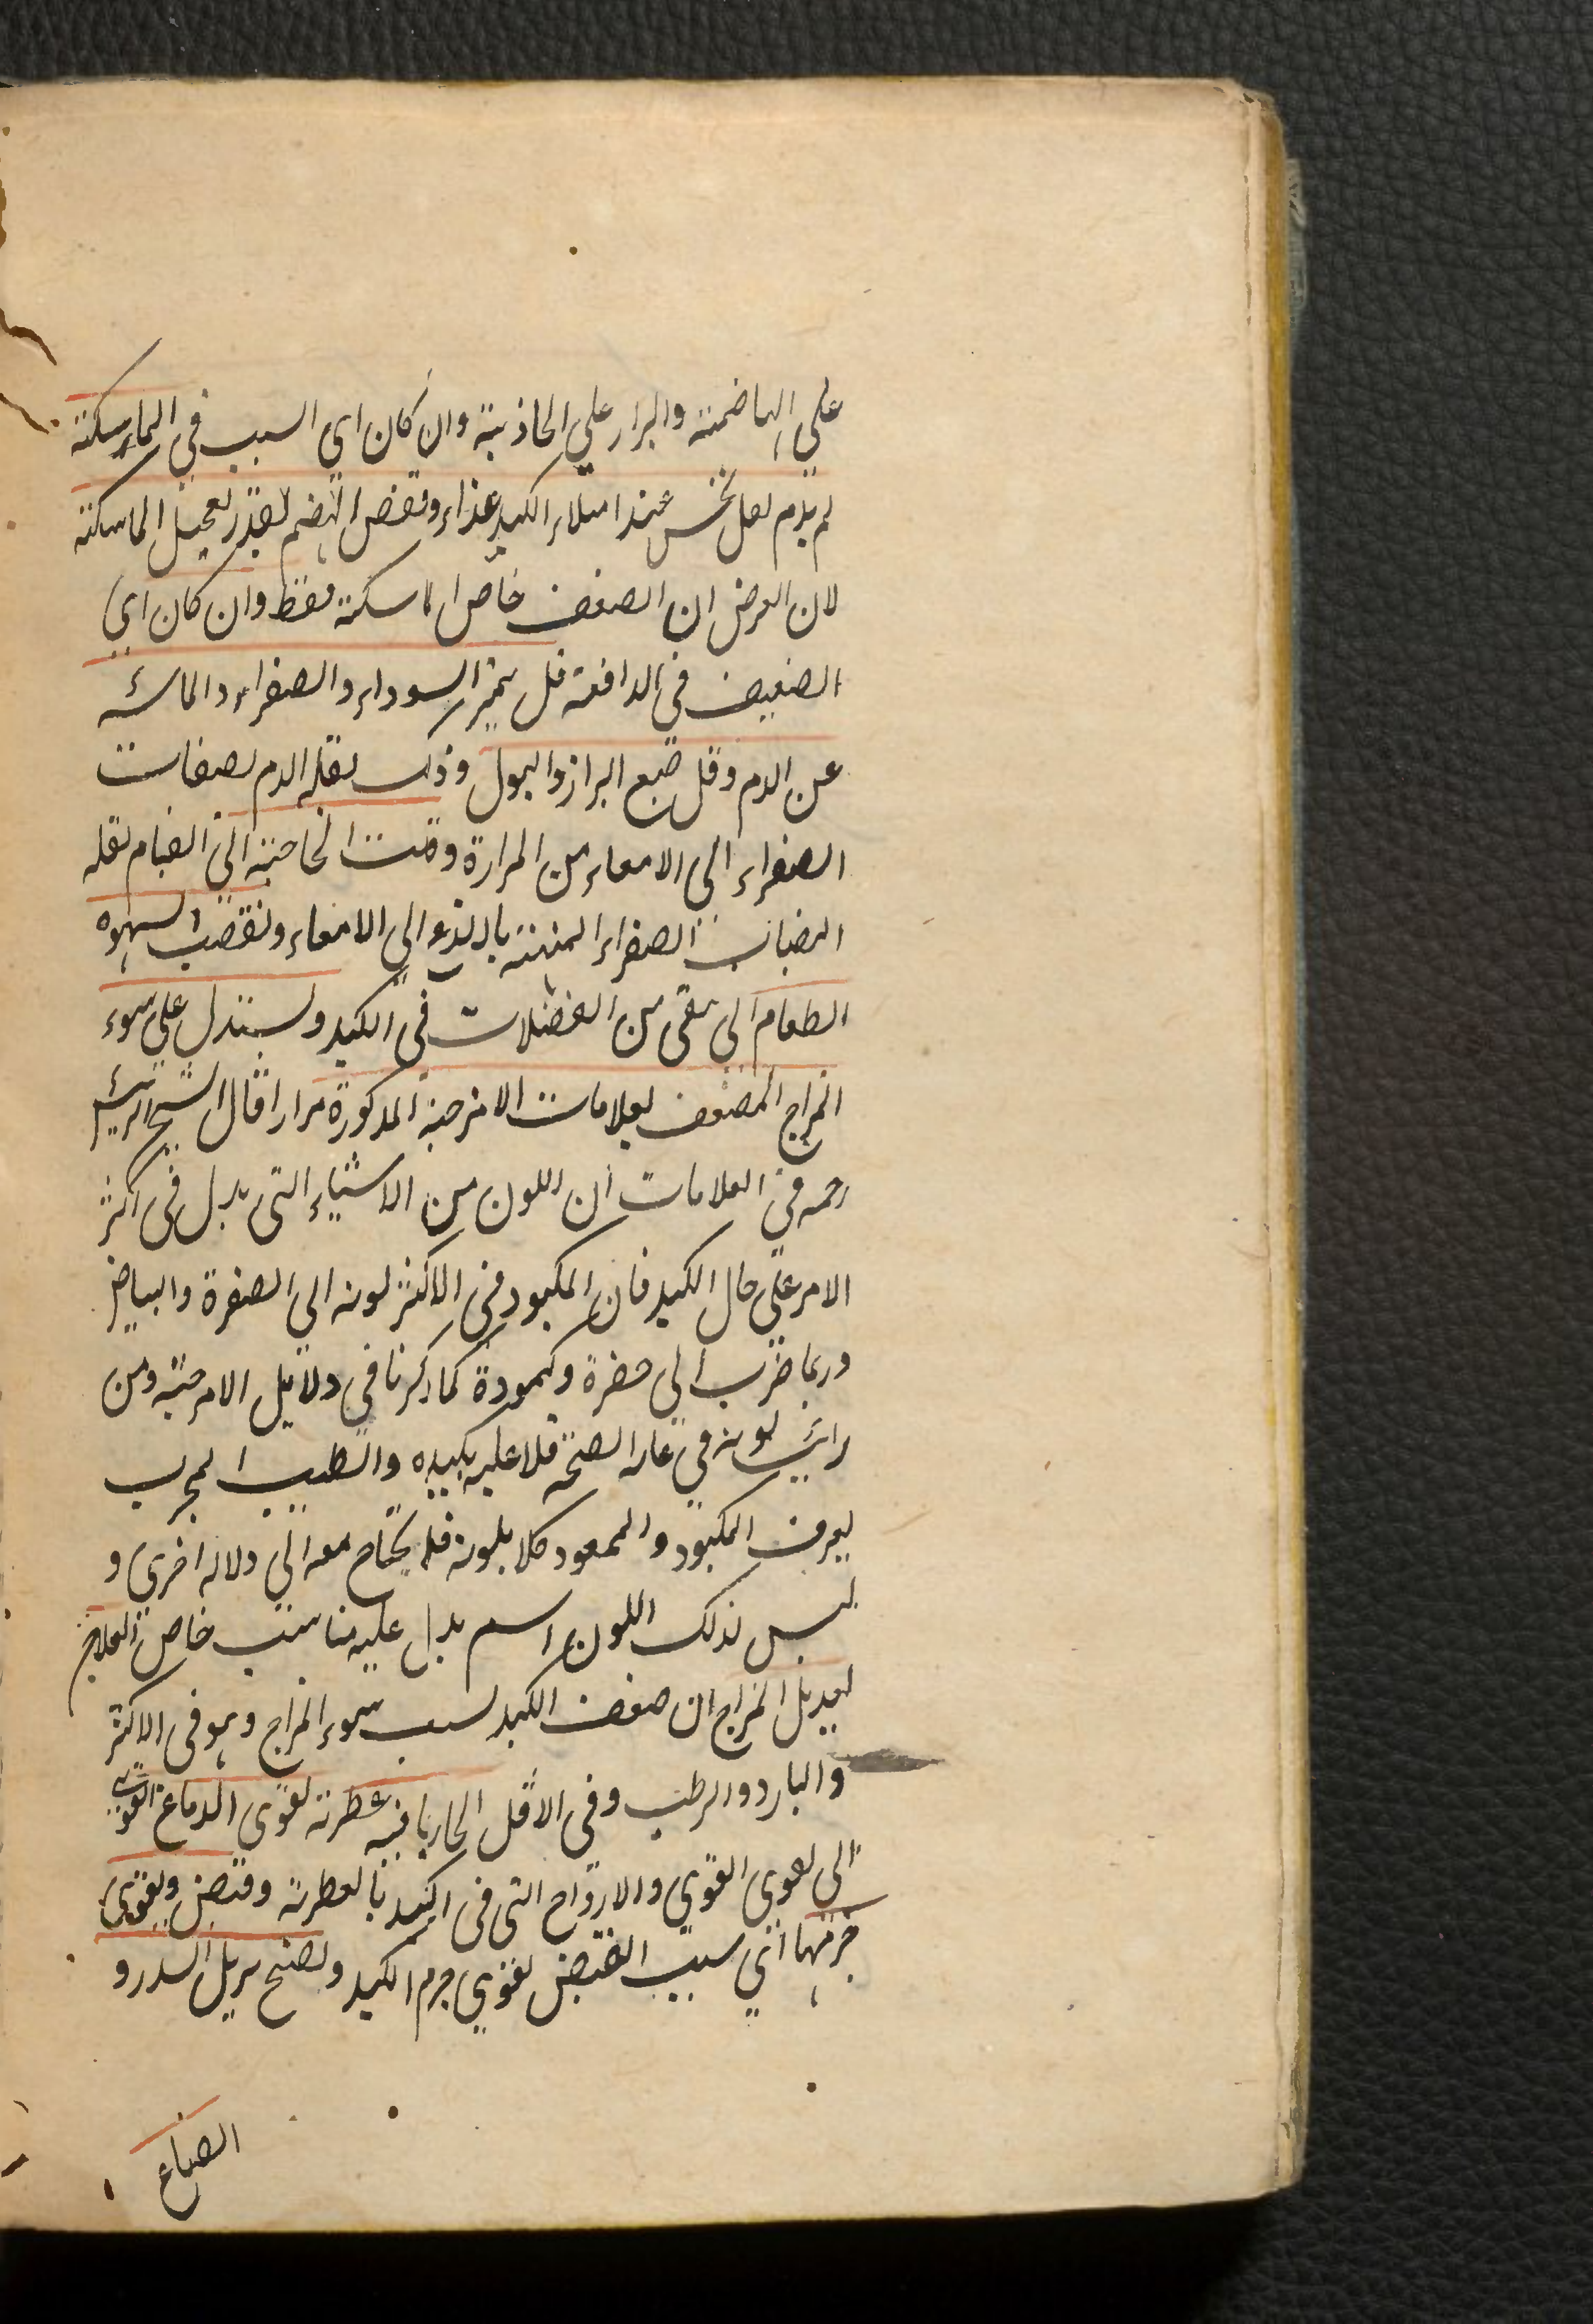 على الهاضمة والبراز على الجاذبة وان كان اى السبب فى الماسكة
لم يدم ثقل يحس عند امتلاء الكبد غذاء ونقص الهضم لقدر تعجيل الماسكة
لان الغرض ان الضعف خاص الماسكة فقط وان كان اى
الضعيف فى الدافعة قل تميز السوداء والصفراء والمائية
عن الدم وقل صبغ البراز والبول وذلك لقلة الدم
الصفراء الى الامعاء من المرارة وقلت الحاجة الى القيام لقلة
انصباب الصفراء المنبهة باللذع الى الامعاء ونقصت الشهوة
الطعام الى بقى من الفضلات فى الكبد ويستدل على سوء
المزاج المضعف بعلامات الامزجة المذكورة مرارا قال الشيخ الرئيس
رحمه فى العلامات ان اللون من الاشياء التى يدل فى اكثر
الامر على حال الكبد فان المكبود فى الاكثر لونه الى الصفرة والبياض
وربما ضرب الى خضرة وكمودة كما ذكرنا فى دلايل الامزجة ومن
رايت لونه فى غاية الصحة فلا علة بكبده والطبيب المجرب
يعرف المكبود والممعود كلا بلونه فلا يحتاج معه الى دلالة اخرى و
ليس لذلك اللون اسم يدل عليه مناسب خاص العلاج
تعديل المزاج ان ضعف الكبد بسبب سوء المزاج وهو فى الاكثر
والبارد والرطب وفى الاقل الحار بما فيه عطرية لقوى الدماغ القوى
الى لقوى القوى والارواح التى فى الكبد بالعطرية وقبض ويقوى
جرمها اى بسبب القبض تقوى جرم الكبد وتفتح يزيل السدد و